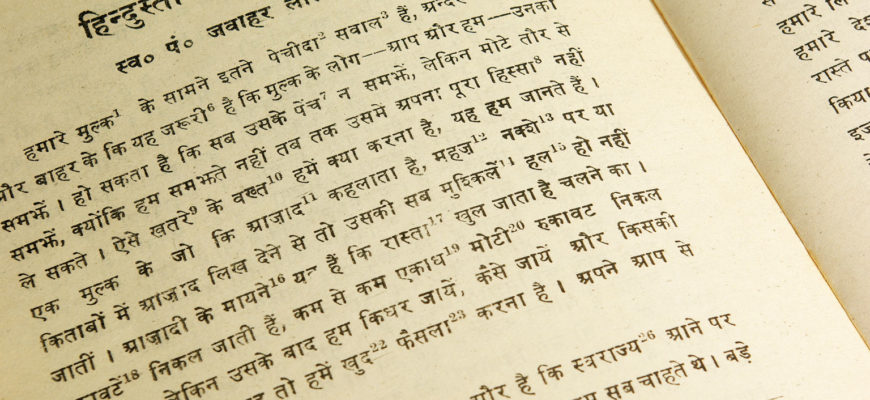 स्व० पं० जवाहर
हमारे मुल्क¹ के सामने इतने पेचीदा² सवाल³ हैं,
और बाहर के कि यह ज़रूरी⁶ है कि मुल्क के लोग—आप और हम—उनको
समझें । हो सकता है कि सब उसके पेंच⁷ न समझें, लेकिन मोटे तौर से
समझें, क्योंकि हम समझते नहीं तब तक उसमें अपना पूरा हिस्सा⁸ नहीं
ले सकते । ऐसे खतरे⁹ के वख्त¹⁰ हमें क्या करना है, यह हम जानते हैं ।
एक मुल्क के जो कि आज़ाद¹¹ कहलाता है, महज़¹² नक्शे¹³ पर या
किताबों में आज़ाद लिख देने से तो उसकी सब मुश्किलें¹⁴ हल¹⁵ हो नहीं
जातीं । आज़ादी के मायने¹⁶ हैं कि रास्ता¹⁷ खुल जाता है चलने का ।
निकल जाती हैं, कम से कम एकाध¹⁹ मोटी²⁰ रुकावट निकल
लेकिन उसके बाद हम किधर जायें, कैसे जायें और किसकी
तो हमें खुद²² फैसला²³ करना है । अपने आप से
और है कि स्वराज्य²⁶ आने पर
सब चाहते थे । बड़े
हमारे
हमारे
रास्ते
किया